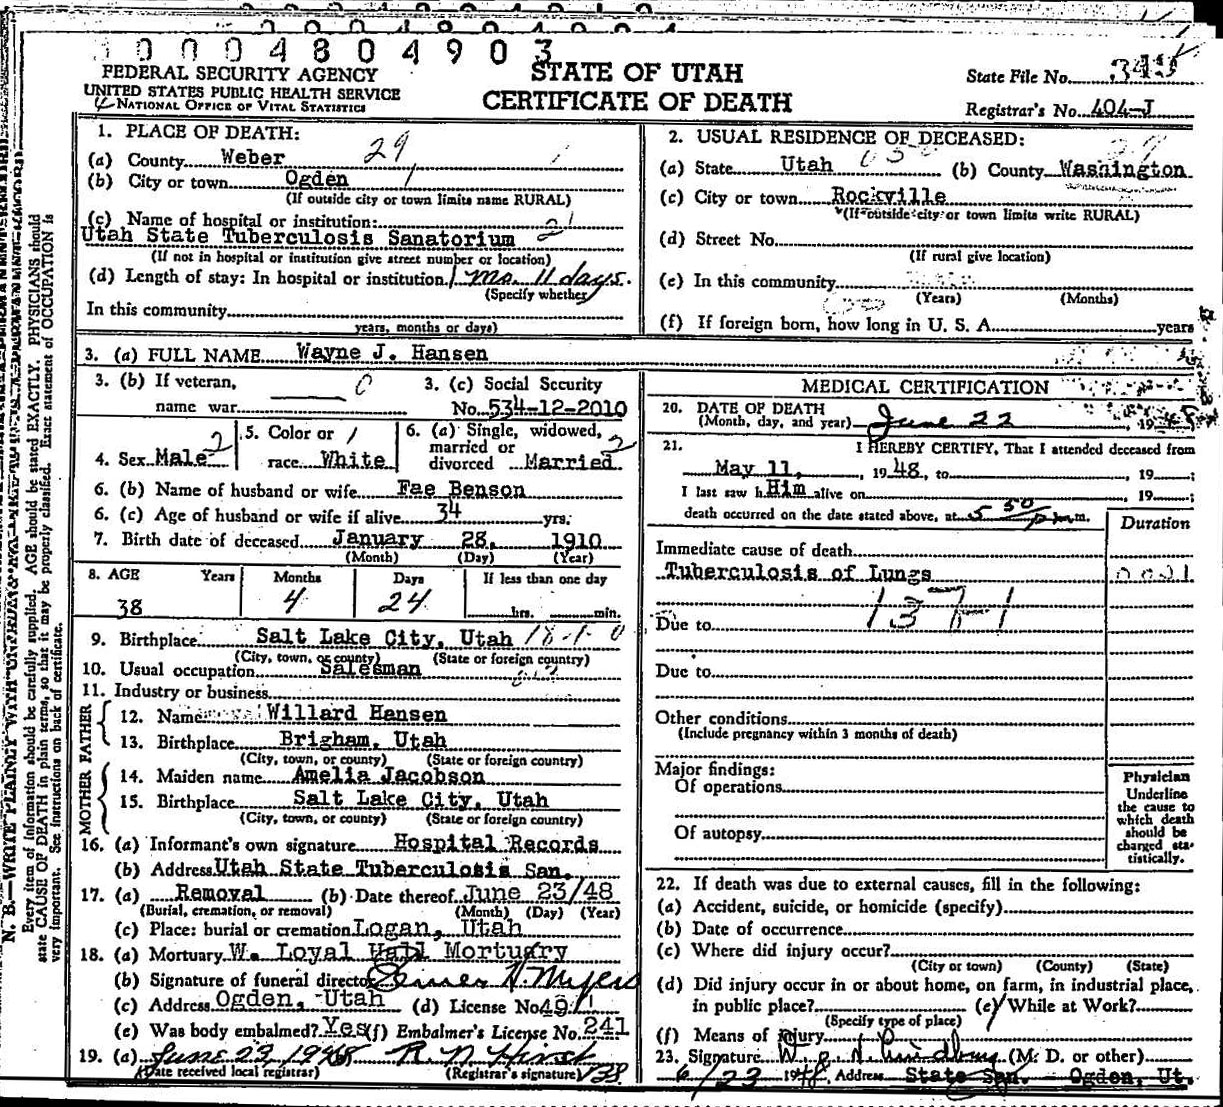 0 0 0 4 8 0 4 9 0 3
FEDERAL SECURITY AGENCY
UNITED STATES PUBLIC HEALTH SERVICE
NATIONAL OFFICE OF VITAL STATISTICS
STATE OF UTAH
CERTIFICATE OF DEATH
State File No.
Registrar's No. 404-J
1. PLACE OF DEATH:
(a) County Weber 29
(b) City or town Ogden
(If outside city or town limits name RURAL)
(c) Name of hospital or institution:
Utah State Tuberculosis Sanatorium 21
(If not in hospital or institution give street number or location)
(d) Length of stay: In hospital or institution 1 mo. 11 days.
(Specify whether
In this community
years, months or days)
2. USUAL RESIDENCE OF DECEASED:
(a) State Utah (b) County Washington
(c) City or town Rockville
(If outside city or town limits write RURAL)
(d) Street No.
(If rural give location)
(e) In this community
(Years) (Months)
(f) If foreign born, how long in U. S. A. years
3. (a) FULL NAME Wayne J. Hansen
3. (b) If veteran, 0
name war
3. (c) Social Security
No. 534-12-2010
4. Sex Male 2
5. Color or 1
race White
6. (a) Single, widowed, 2
married or
divorced Married
6. (b) Name of husband or wife Fae Benson
6. (c) Age of husband or wife if alive 34 yrs.
7. Birth date of deceased January 28, 1910
(Month) (Day) (Year)
8. AGE Years Months Days If less than one day
38 4 24 hrs. min.
9. Birthplace Salt Lake City, Utah
(City, town, or county) (State or foreign country)
10. Usual occupation Salesman
11. Industry or business
FATHER
12. Name Willard Hansen
13. Birthplace Brigham, Utah
(City, town, or county) (State or foreign country)
MOTHER
14. Maiden name Amelia Jacobson
15. Birthplace Salt Lake City, Utah
(City, town, or county) (State or foreign country)
16. (a) Informant's own signature Hospital Records
(b) Address Utah State Tuberculosis San.
17. (a) Removal (b) Date thereof June 23/48
(Burial, cremation, or removal) (Month) (Day) (Year)
(c) Place: burial or cremation Logan, Utah
18. (a) Mortuary W. Loyal Hall Mortuary
(b) Signature of funeral director
(c) Address Ogden, Utah (d) License No. 491
(e) Was body embalmed? Yes (f) Embalmer's License No. 241
19. (a) June 23, 1948
(Date received local registrar) (Registrar's signature)
MEDICAL CERTIFICATION
20. DATE OF DEATH
(Month, day, and year) June 22, 1948
21. I HEREBY CERTIFY, That I attended deceased from
May 11, 1948, to 19
I last saw h Him alive on , 19
death occurred on the date stated above, at 5 50 p m.
Duration
Immediate cause of death
Tuberculosis of Lungs
Due to
Due to
Other conditions
(Include pregnancy within 3 months of death)
Major findings:
Of operations
Of autopsy
Physician
Underline
the cause to
which death
should be
charged sta-
tistically.
22. If death was due to external causes, fill in the following:
(a) Accident, suicide, or homicide (specify)
(b) Date of occurrence
(c) Where did injury occur?
(City or town) (County) (State)
(d) Did injury occur in or about home, on farm, in industrial place,
in public place? (e) While at Work?
(Specify type of place)
(f) Means of injury
23. Signature (M. D. or other)
6/23 1948, Address State San. Ogden, Ut.
N. B.—WRITE PLAINLY WITH
Every item of information should be carefully supplied. AGE should be stated EXACTLY. PHYSICIANS should
state CAUSE OF DEATH in plain terms, so that it may be properly classified. Exact statement of OCCUPATION is
very important. See instructions on back of certificate.